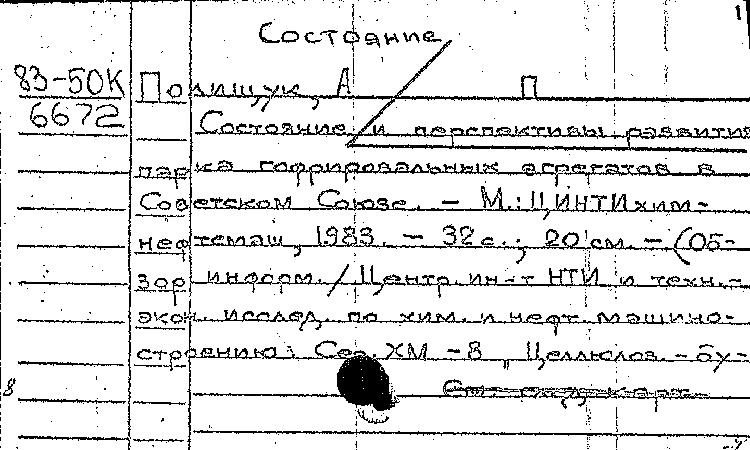 Состояние
83-50К Полищук, А П
6672 Состояние и перспективы развития
парка гофрировальных агрегатов в
Советском Союзе. - М.: ЦИНТИхим-
нефтемаш, 1983. - 32 с.; 20 см. - (Об-
зор информ. / Центр. ин-т НТИ и техн.-
экон. исслед. по хим. и нефт. машино-
строению: Сер. ХМ - 8, Целлюлоз. - бу-
8